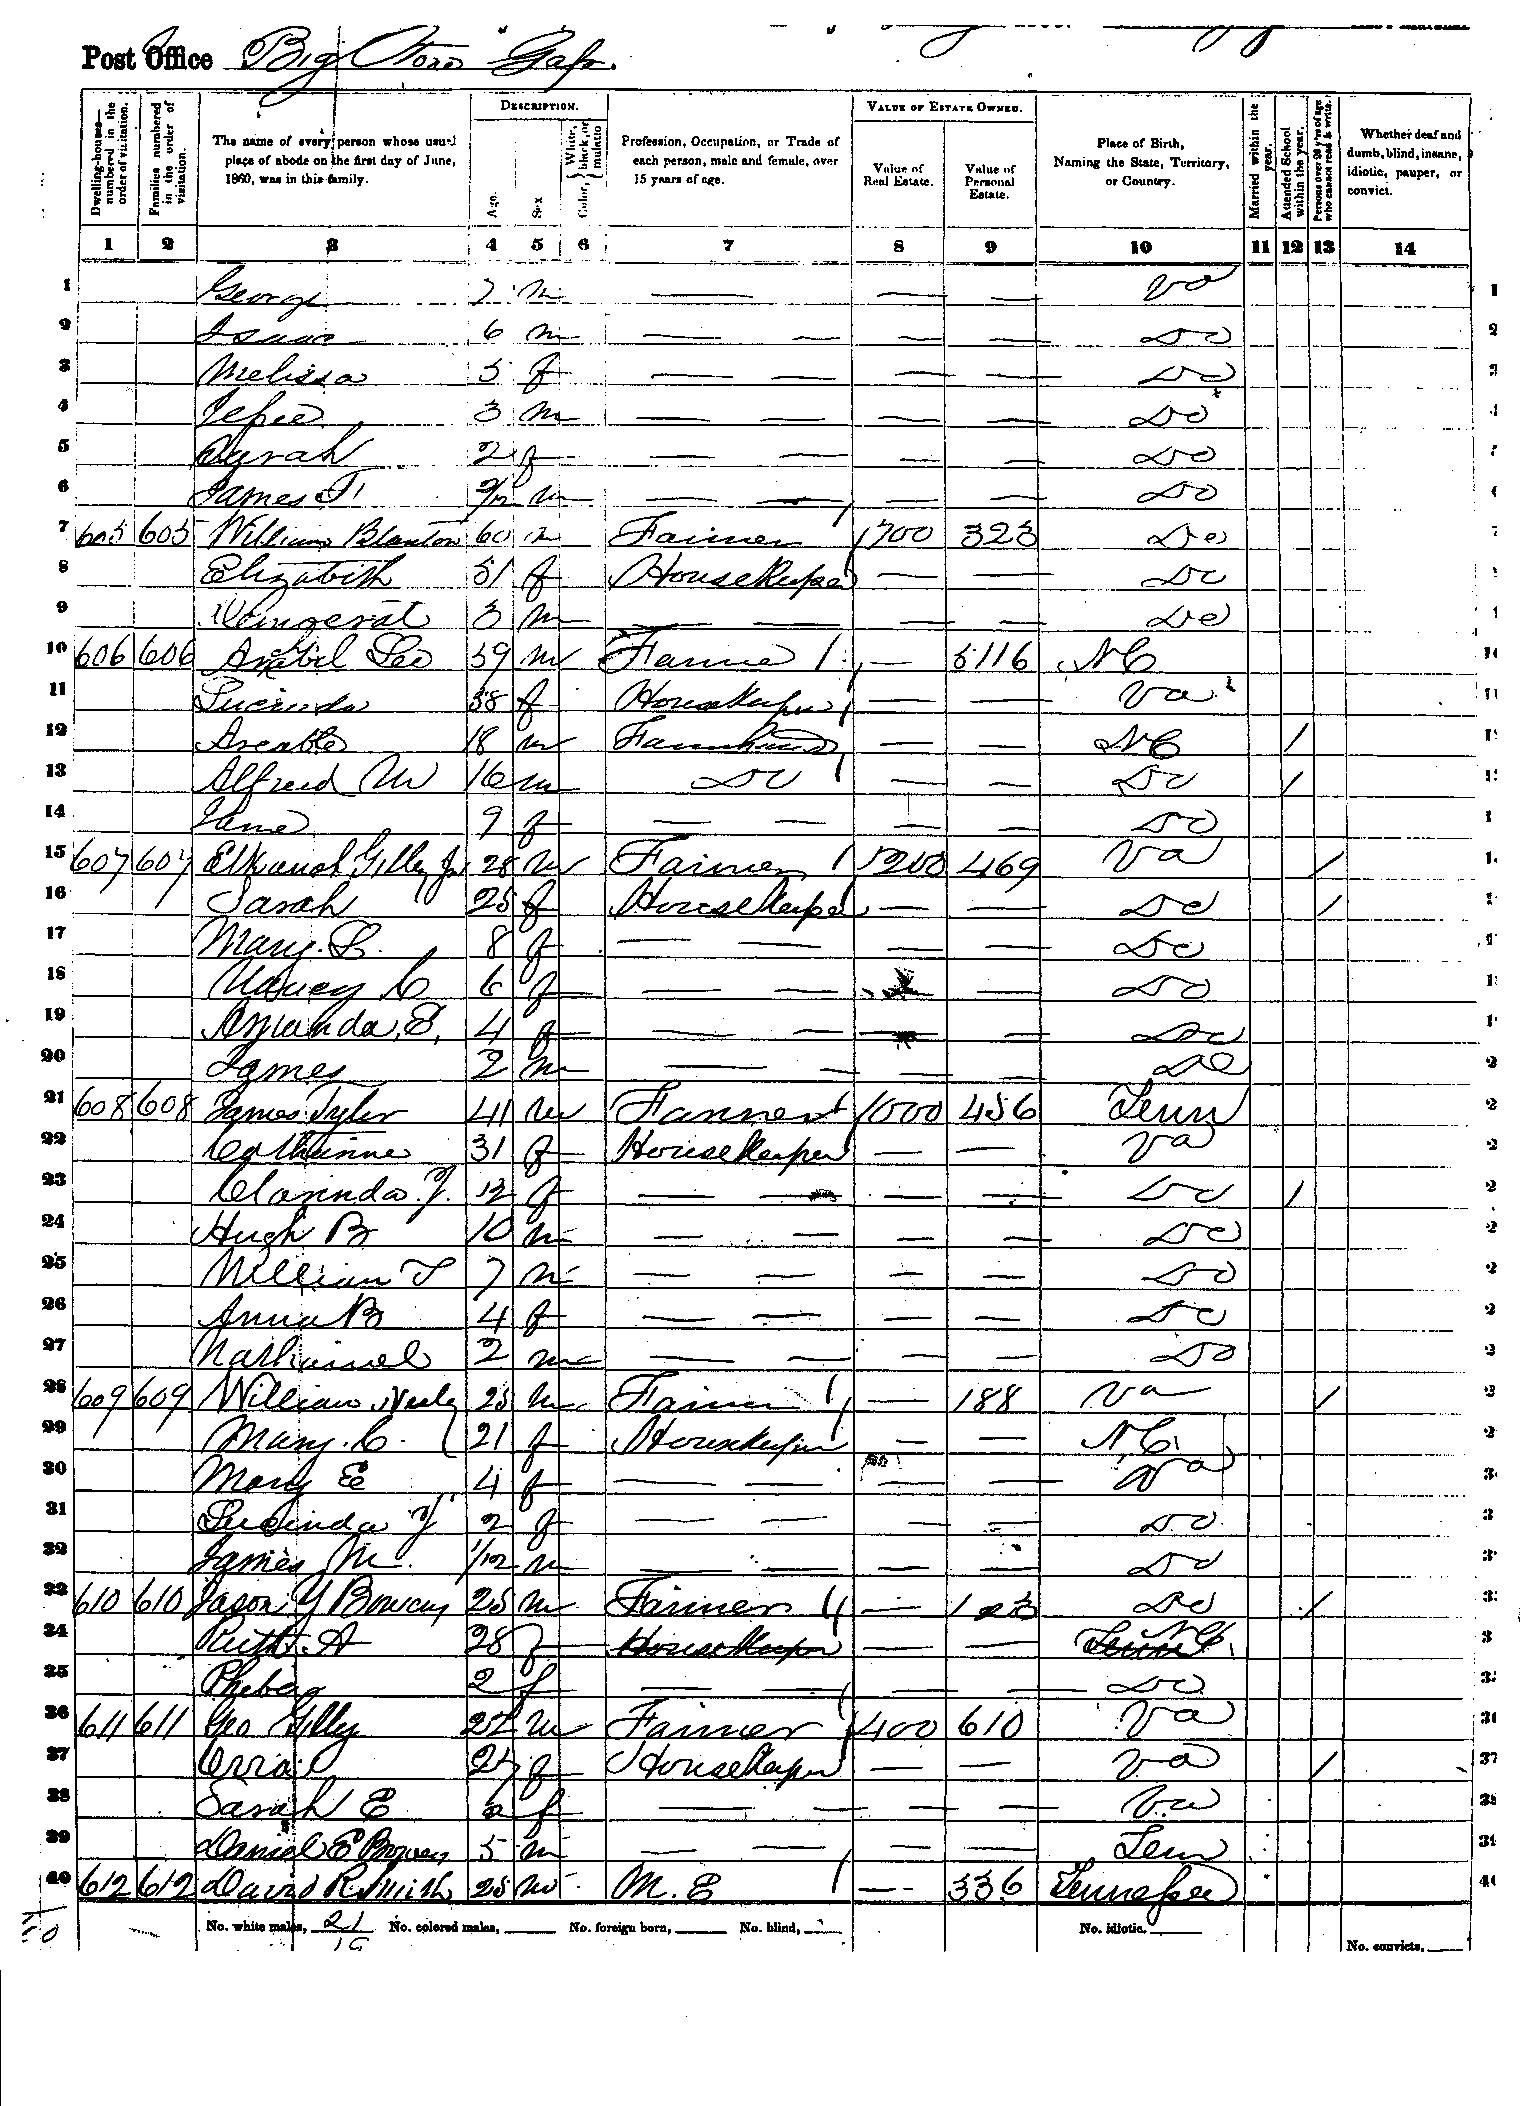 Post Office Big Stone Gap.
Dwelling-houses—numbered in the order of visitation.
Families numbered in the order of visitation.
The name of every person whose usual place of abode on the first day of June, 1860, was in this family.
DESCRIPTION.
Age.
Sex
Color, { White, black, or mulatto }
Profession, Occupation, or Trade of each person, male and female, over 15 years of age.
VALUE OF ESTATE OWNED.
Value of Real Estate.
Value of Personal Estate.
Place of Birth, Naming the State, Territory, or Country.
Married within the year.
Attended School within the year.
Persons over 20 y'rs of age who cannot read & write.
Whether deaf and dumb, blind, insane, idiotic, pauper, or convict.
1 2 3 4 5 6 7 8 9 10 11 12 13 14
1 George 7 m — — — Va 1
2 Isaac 6 m — — — — Do 2
3 Melissa 5 f — — — — Do
4 3 m — — — — Do
5 Sarah 2 f — — — — Do
6 James T 9/12 m — — — — Do
7 605 605 William Blanton 60 m Farmer 1700 323 Do
8 Elizabeth 51 f Housekeeper — — Do
9 3 m — — — — Do
10 606 606 Lee 39 m Farmer — 5116 NC
11 Lucinda 38 f Housekeeper — — Va
12 18 m Farmhand — — NC /
13 Alfred M 16 m Do — — Do /
14 Jane 9 f — — — — Do
15 607 607 Elkanah Gilley Jr 28 m Farmer 1200 469 Va /
16 Sarah 25 f Housekeeper — — Do /
17 Mary. L. 8 f — — — — Do
18 Nancy C 6 f — — — Do
19 Amanda, E, 4 f — — — — Do
20 James 2 m — — — — Do
21 608 608 James Tyler 41 m Farmer 1000 456 Tenn
22 Catharine 31 f Housekeeper — — Va
23 Clarinda J. 12 f — — — — Do /
24 Hugh B 10 m — — — — Do
25 William T 7 m — — — — Do
26 Anna B 4 f — — — — Do
27 Nathaniel 2 m — — — — Do
28 609 609 William Neely 25 m Farmer — 188 Va /
29 Mary. C. 21 f Housekeeper — — NC
30 Mary E 4 f — — — — Va
31 Lucinda J 2 f — — — — Do
32 James M. 1/12 m — — — — Do
33 610 610 Jason Y Bowery 25 m Farmer — 123 Do /
34 Ruth. A 28 f Housekeeper — — Tenn NC
35 Pheba 2 f — — — — Do
36 611 611 Geo Gilley 27 m Farmer 400 610 Va
37 27 f Housekeeper — — Va / 37
38 Sarah E 6 f — — — — Va
39 Daniel E Bowery 5 m — — — — Tenn
40 612 612 David R Smith 25 m M. E — 336 Tennessee
No. white males, 21 No. colored males, No. foreign born, No. blind, No. idiotic. No. convicts,
19